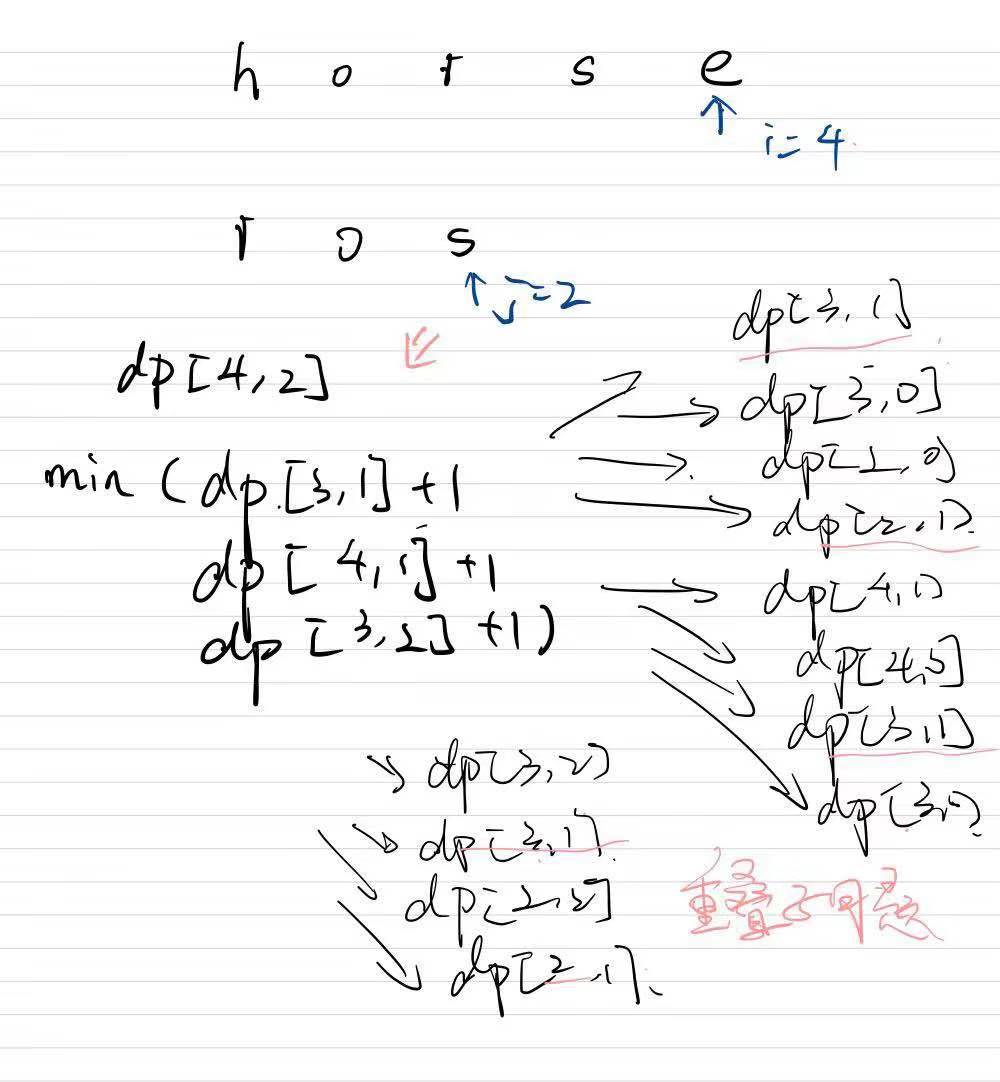 h o r s e
i=4
r o s
j=2
dp[4,2]
min(dp[3,1]+1
dp[4,1]+1
dp[3,2]+1)
dp[3,1]
dp[3,0]
dp[2,0]
dp[2,1]
dp[4,1]
dp[3,1]
dp[3,2]
dp[3,1]
dp[2,2]
dp[2,1]
重叠子问题